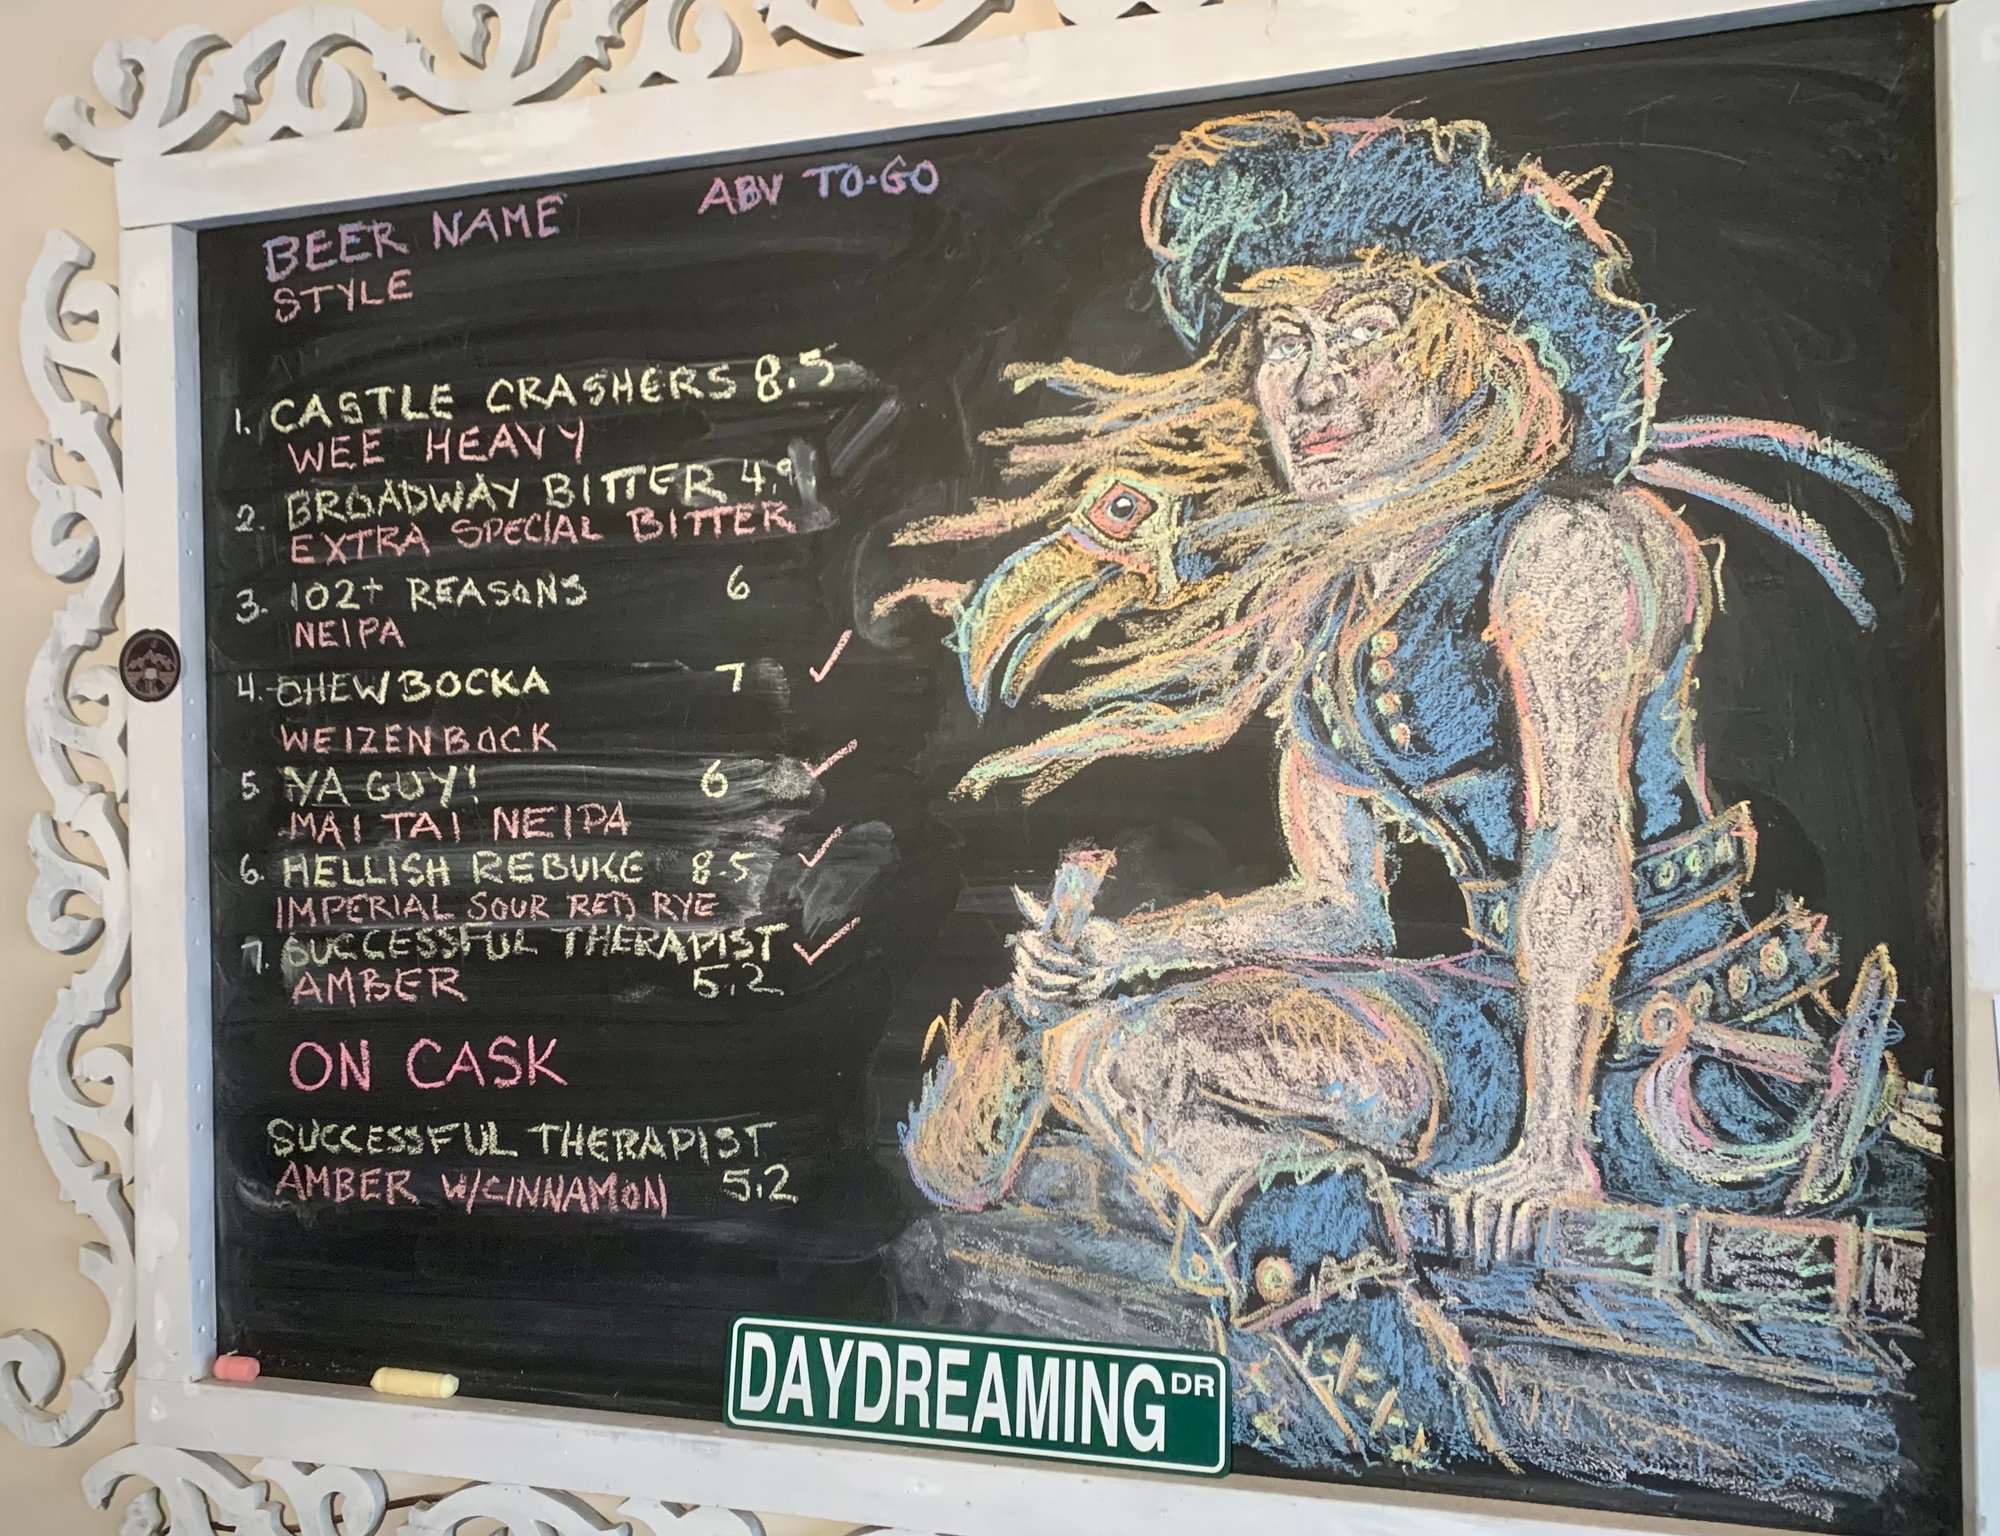 BEER NAME ABV TO-GO
STYLE
1. CASTLE CRASHERS 8.5
WEE HEAVY
2. BROADWAY BITTER 4.9
EXTRA SPECIAL BITTER
3. 102+ REASONS 6
NEIPA
4. CHEWBOCKA 7 ✓
WEIZENBOCK
5 YA GUY! 6 ✓
MAI TAI NEIPA
6. HELLISH REBUKE 8.5 ✓
IMPERIAL SOUR RED RYE
7. SUCCESSFUL THERAPIST ✓
AMBER 5.2
ON CASK
SUCCESSFUL THERAPIST
AMBER W/CINNAMON 5.2
DAYDREAMING DR